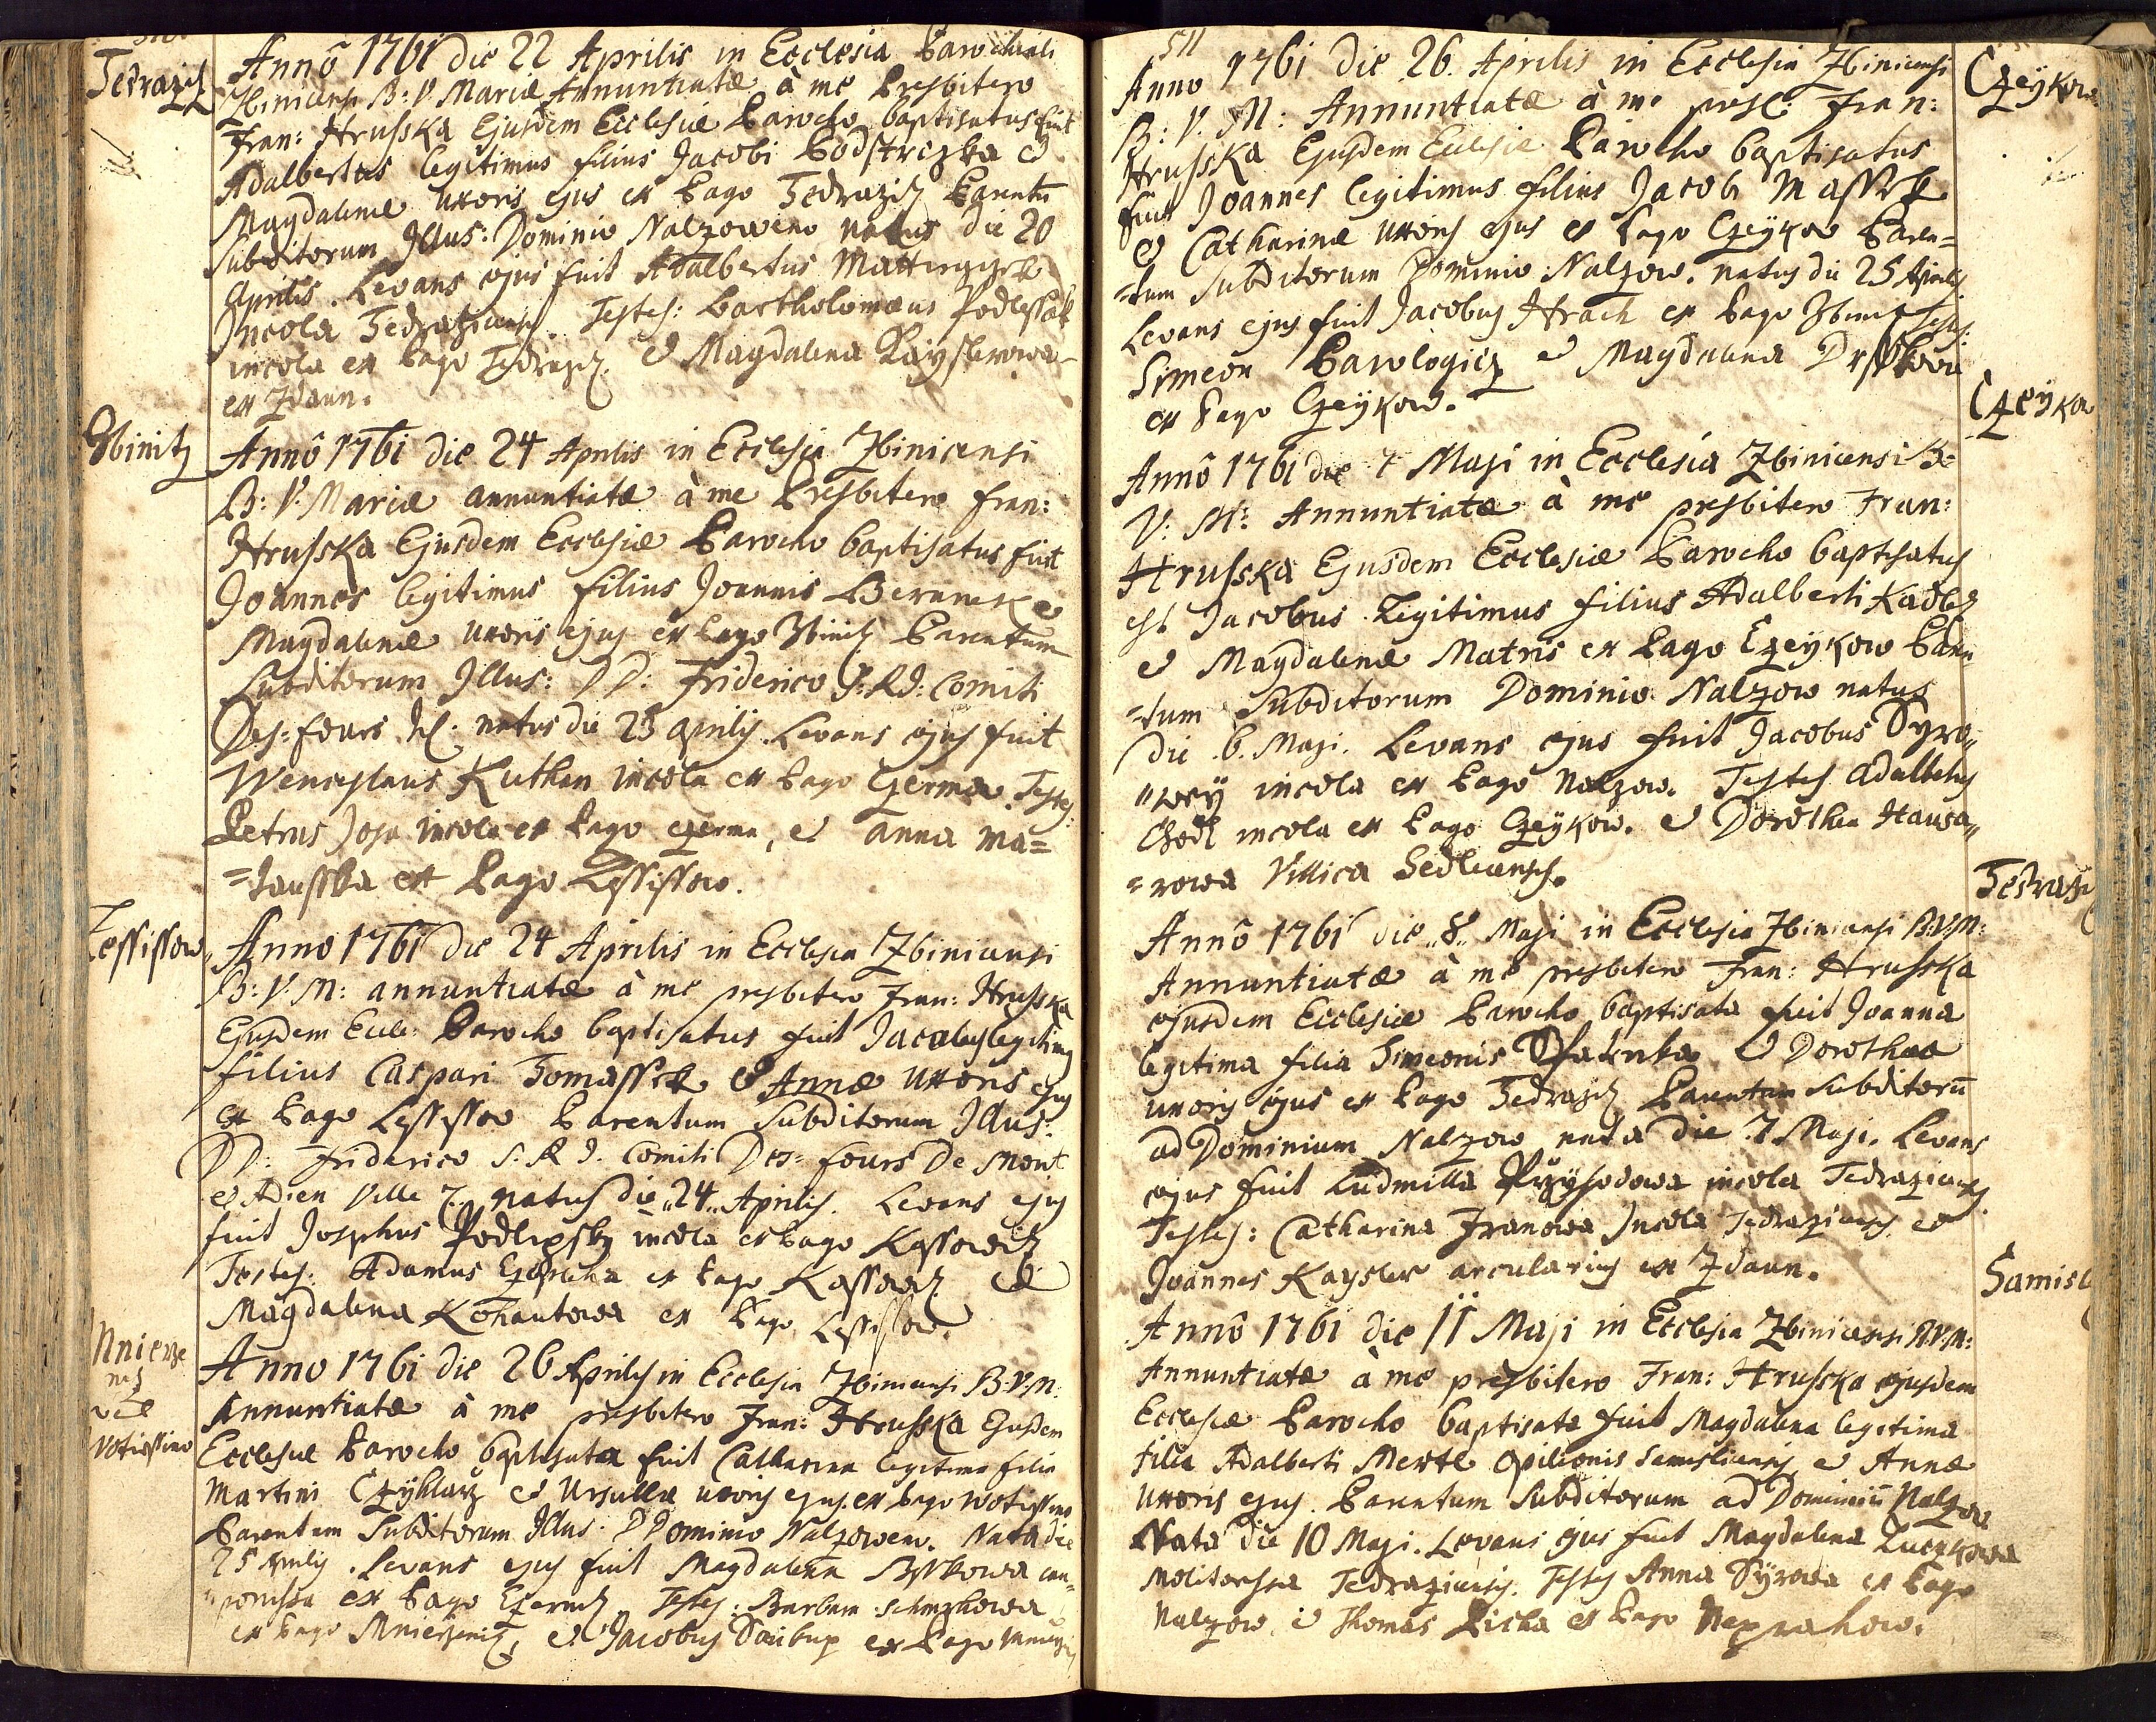 Tedrazicz
Annô 1761 die 22 Aprilis in Ecclesia Parochiali
Zbinicensi B: V. Mariæ Annuntiatæ à me Presbitero
Fran: Hrusska Ejusdem Ecclesiæ Parocho baptisatus fuit
Adalbertus legitimus filius Jacobi Podstrczka et
Magdalenæ uxoris ejus ex Pago Tedrazicz Parentu
Subditorum Illus: Dominio Nalzoweno natus die 20
Aprilis. Levans ejus fuit Adalbertus
Incola Tedraziensis. Testes: Bartholomæus Podlessak
incola ex Pago Tedrazicz. et Magdalena Kayslerowa
ex Zdaun.
Zbinitz
Annô 1761 die 24 Aprilis in Ecclesia Zbinicensi
B: V. Mariæ annuntiatæ à me Presbitero Fran:
Hrusska Ejusdem Ecclesiæ Parocho baptisatus fuit
Joannes legitimus filius Joannis Beranek et
Magdalenæ uxoris ejus ex Pago Zbinitz Parentum
Subditorum Illus: DD: Friderico S: R I: Comiti
Des=fours natus die 23 aprilis. Levans ejus fuit
Wenceslaus Kuthan incola ex Pago Czerma. Testes:
Petrus incola ex Pago czerma, et anna ma=
=tausska ex Pago Lessissow.
Lessissow
Anno 1761 die 24 Aprilis in Ecclesia Zbinicensi
B: V. M: annuntiatæ à me presbitero Fran: Hrusska
Ejusdem Eccle: Parocho baptisatus fuit Jacobus legitimus
filius Caspari Tomassek et Annæ uxoris ejus
ex Pago Lessissow Parentum Subditorum Illus:
DD: Friderico S. R I. Comiti Des=fours De Mont
et Adien Ville natus die „24„ Aprilis. Levans ejus
fuit Josephus Podlipsky incola ex Pago Kassowitz
Testes: Adamus ex Pago Kassowitz et
Magdalena Kohautowa ex Pago Lessissow.
Mnicze
nitz
vel
Wotiessino
Anno 1761 die 26 Aprilis in Ecclesia Zbinicensi B:V.M:
Annuntiatæ à me presbitero Fran: Hrusska Ejusdem
Ecclesiæ Parocho baptisata fuit Catharina legitima filia
Martini Czyhlarz et Ursullæ uxoris ejus ex Pago Wotiessino
Parentum Subditorum Illus: DDominio Nalzoweno. Nata die
25 Aprilis. Levans ejus fuit Magdalena cau=
„ponissa ex Pago Testes: Barbara
ex Pago et Jacobus Saukup ex Pago
511
Anno 1761 die 26. Aprilis in Ecclesia Zbinicensi
Czeykow
B: V. M: Annuntiatæ à me presb: Fran:
Hrusska Ejusdem Eclesiæ Parocho baptisatus
fuit Joannes legitimus filius Jacobi Massek
et Catharinæ uxoris ejus ex Pago Czeykow Paren=
=tum Subditorum Dominio Nalzow. natus die 25 Aprilis
Levans ejus fuit Jacobus Hrach ex Pago Testes:
Simeon et Magdalena
ex Pago Czeykow.
Czeykow
Annô 1761 die 7 Maji in Ecclesia Zbinicensi B:
V: M: Annuntiatæ à me presbitero Fran:
Hrusska Ejusdem Ecclesiæ Parocho baptisatus
est Jacobus Legitimus filius Adalberti Kadlez
et Magdalenæ Matris ex Pago Czeykow Paren
=tum Subditorum Dominio Nalzow natus
die .6. Maji. Levans ejus fuit Jacobus Syro„
„wey incola ex Pago Nalzow. Testes Adalbertus
incola ex Pago Czeykow. et Dorothea Hausa„
=rowa Villica Sedlecensis.
Tedrazi
Annô 1761 die „8„ Maji in Ecclesia Zbinicensi B:V.M:
Annuntiatæ à me presbitero Fran: Hrusska
ejusdem Ecclesiæ Parocho baptisata fuit Joanna
legitima filia Simeonis et Dorotheæ
uxoris ejus ex Pago Tedrazicz Parentum subditorū
ad Dominium Nalzow nata die .7. Maji. Levans
ejus fuit Ludmilla incola Tedraziensis
Testes: Catharina Franowa Incola Tedraziensis et
Joannes Kaysler arcularius ex Zdaun.
Samisl
Annô 1761 die 11 Maji in Ecclesia Zbinicensi B.V.M:
Annuntiatæ à me presbitero Fran: Hrusska ejusdem
Ecclesiæ Parocho baptisata fuit Magdalena legitima
filia Adalberti Mertl opilionis Samisliensis et Annæ
uxoris ejus. Parentum Subditorum ad Dominiū Nalzow
Nata die 10 Maji. Levans ejus fuit Magdalena Luczkowa
Molitorissa Tedraziensis. Testes Anna Syrowa ex Pago
Nalzow. et Thomas Licha ex Pago Neprachow.